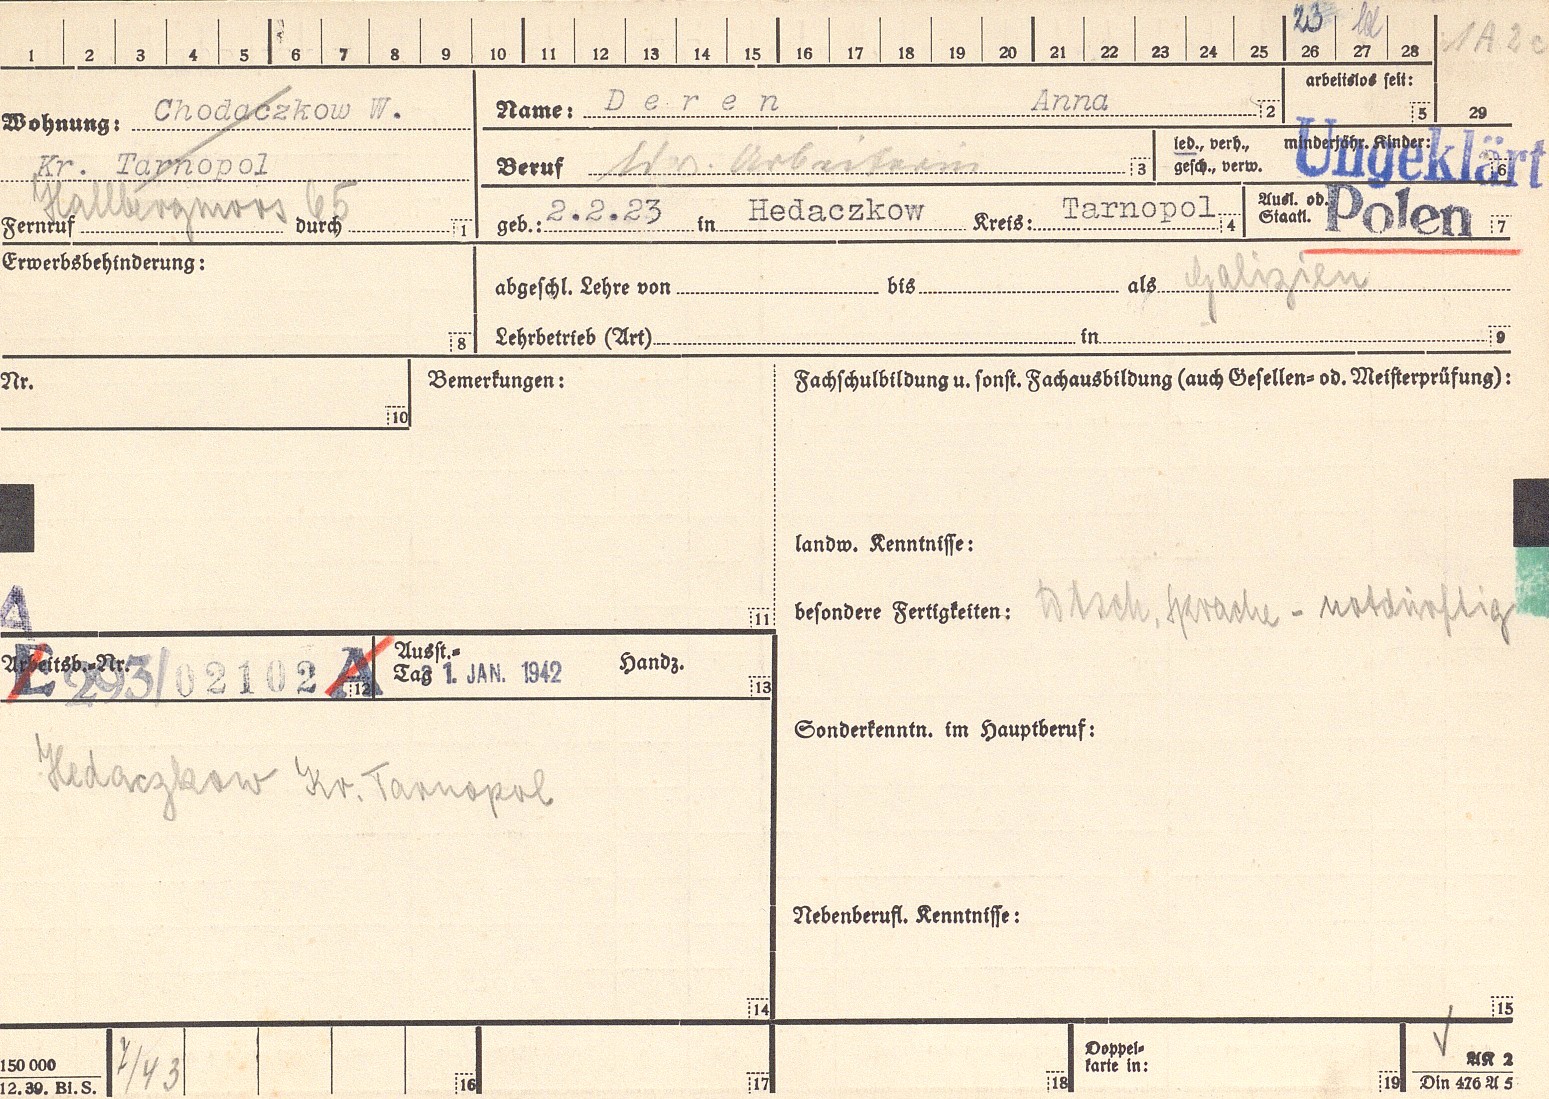 1 2 3 4 5 6 7 8 9 10 11 12 13 14 15 16 17 18 19 20 21 22 23 24 25 26 27 28
23
1A2c
29
Wohnung: Chodaczkow W.
Kr. Tarnopol
Hallbergmoos 65
Fernruf durch 1
Name: Deren Anna 2
arbeitslos seit: 5
Beruf lw. Arbeiterin 3
led., verh., gesch., verw.
minderjähr. Kinder: 6
Ungeklärt
geb.: 2.2.23 in Hedaczkow Kreis: Tarnopol 4
Ausl. od. Staatl. Polen 7
Erwerbsbehinderung: 8
abgeschl. Lehre von bis als Galizien
Lehrbetrieb (Art) in 9
Nr. 10
Bemerkungen: 11
Fachschulbildung u. sonst. Fachausbildung (auch Gesellen- od. Meisterprüfung):
landw. Kenntnisse:
besondere Fertigkeiten: Dtsch. Sprache - notdürftig
A
Arbeitsb.-Nr. E 293/02102 A 12
Ausst.-Tag 31. JAN. 1942 Handz. 13
Hedaczkow Kr. Tarnopol
14
Sonderkenntn. im Hauptberuf:
Nebenberufl. Kenntnisse:
15
150 000
12. 39. Bl. S.
7/43
16
17
18
Doppel-
karte in:
19
AK 2
Din 476 A 5